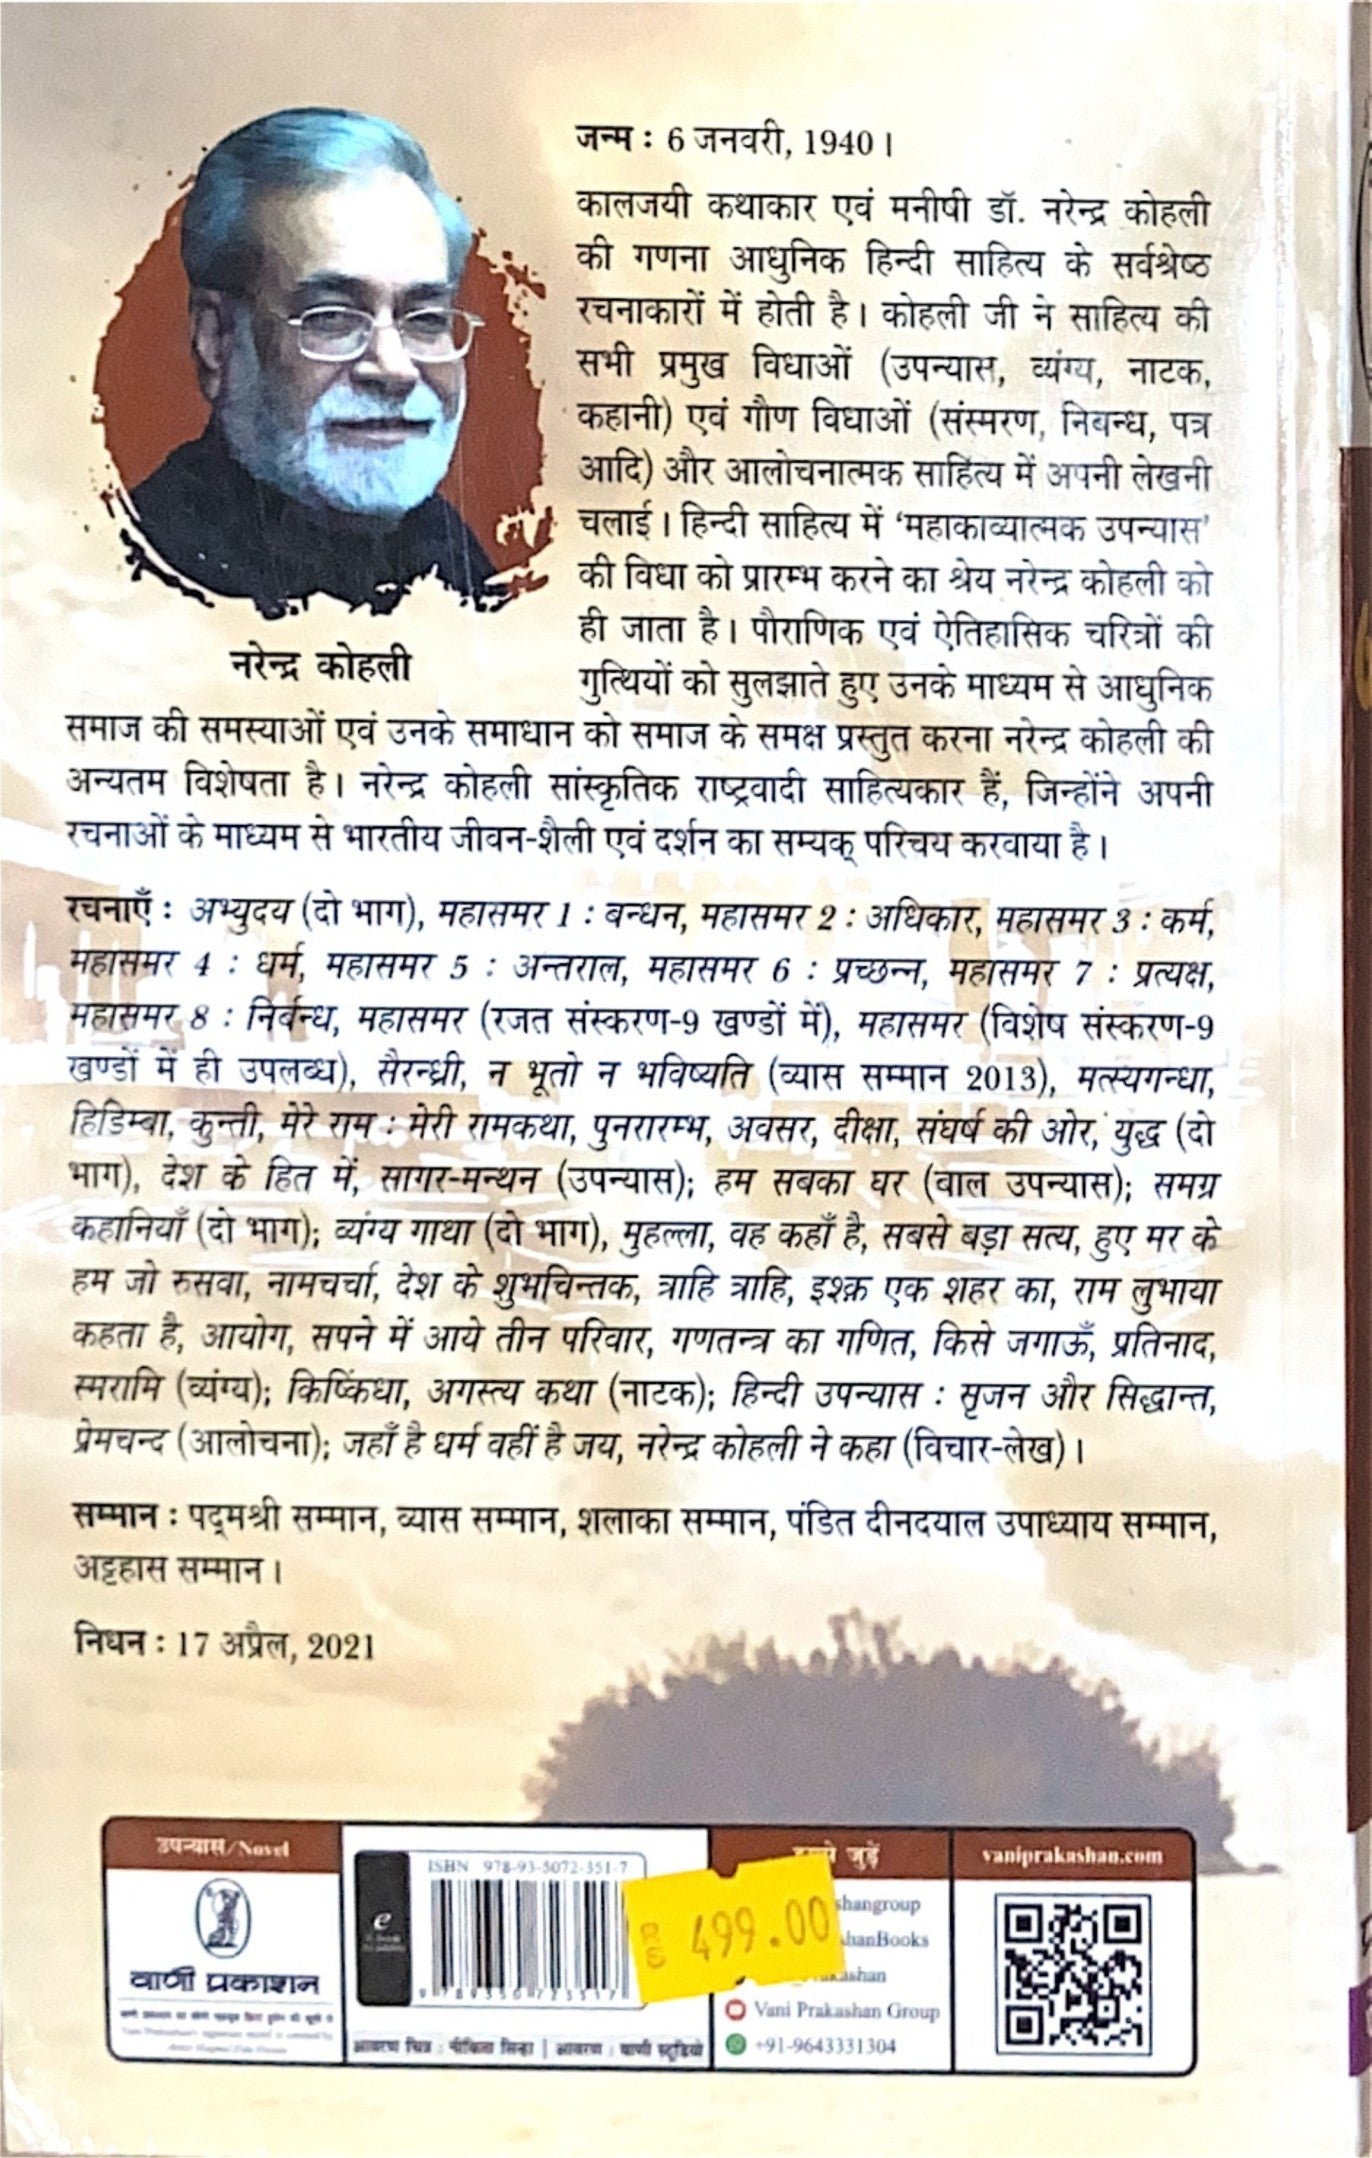 जन्म : 6 जनवरी, 1940।
कालजयी कथाकार एवं मनीषी डॉ. नरेन्द्र कोहली
की गणना आधुनिक हिन्दी साहित्य के सर्वश्रेष्ठ
रचनाकारों में होती है। कोहली जी ने साहित्य की
सभी प्रमुख विधाओं (उपन्यास, व्यंग्य, नाटक,
कहानी) एवं गौण विधाओं (संस्मरण, निबन्ध, पत्र
आदि) और आलोचनात्मक साहित्य में अपनी लेखनी
चलाई। हिन्दी साहित्य में ‘महाकाव्यात्मक उपन्यास’
की विधा को प्रारम्भ करने का श्रेय नरेन्द्र कोहली को
ही जाता है। पौराणिक एवं ऐतिहासिक चरित्रों की
गुत्थियों को सुलझाते हुए उनके माध्यम से आधुनिक
नरेन्द्र कोहली
समाज की समस्याओं एवं उनके समाधान को समाज के समक्ष प्रस्तुत करना नरेन्द्र कोहली की
अन्यतम विशेषता है। नरेन्द्र कोहली सांस्कृतिक राष्ट्रवादी साहित्यकार हैं, जिन्होंने अपनी
रचनाओं के माध्यम से भारतीय जीवन-शैली एवं दर्शन का सम्यक् परिचय करवाया है।
रचनाएँ : अभ्युदय (दो भाग), महासमर 1 : बन्धन, महासमर 2 : अधिकार, महासमर 3 : कर्म,
महासमर 4 : धर्म, महासमर 5 : अन्तराल, महासमर 6 : प्रच्छन्न, महासमर 7 : प्रत्यक्ष,
महासमर 8 : निर्बन्ध, महासमर (रजत संस्करण-9 खण्डों में), महासमर (विशेष संस्करण-9
खण्डों में ही उपलब्ध), सैरन्ध्री, न भूतो न भविष्यति (व्यास सम्मान 2013), मत्स्यगन्धा,
हिडिम्बा, कुन्ती, मेरे राम : मेरी रामकथा, पुनरारम्भ, अवसर, दीक्षा, संघर्ष की ओर, युद्ध (दो
भाग), देश के हित में, सागर-मन्थन (उपन्यास); हम सबका घर (बाल उपन्यास); समग्र
कहानियाँ (दो भाग); व्यंग्य गाथा (दो भाग), मुहल्ला, वह कहाँ है, सबसे बड़ा सत्य, हुए मर के
हम जो रुसवा, नामचर्चा, देश के शुभचिन्तक, त्राहि त्राहि, इश्क़ एक शहर का, राम लुभाया
कहता है, आयोग, सपने में आये तीन परिवार, गणतन्त्र का गणित, किसे जगाऊँ, प्रतिनाद,
स्मरामि (व्यंग्य); किष्किंधा, अगस्त्य कथा (नाटक); हिन्दी उपन्यास : सृजन और सिद्धान्त,
प्रेमचन्द (आलोचना); जहाँ है धर्म वहीं है जय, नरेन्द्र कोहली ने कहा (विचार-लेख)।
सम्मान : पद्मश्री सम्मान, व्यास सम्मान, शलाका सम्मान, पंडित दीनदयाल उपाध्याय सम्मान,
अट्टहास सम्मान।
निधन : 17 अप्रैल, 2021
उपन्यास/Novel
वाणी प्रकाशन
ISBN 978-93-5072-351-7
e
9 789350 723517
आवरण चित्र : नीकिता सिन्हा | आवरण : वाणी स्टूडियो
RS 499.00
जुड़ें
shangroup
hanBooks
ashan
Vani Prakashan Group
+91-9643331304
vaniprakashan.com